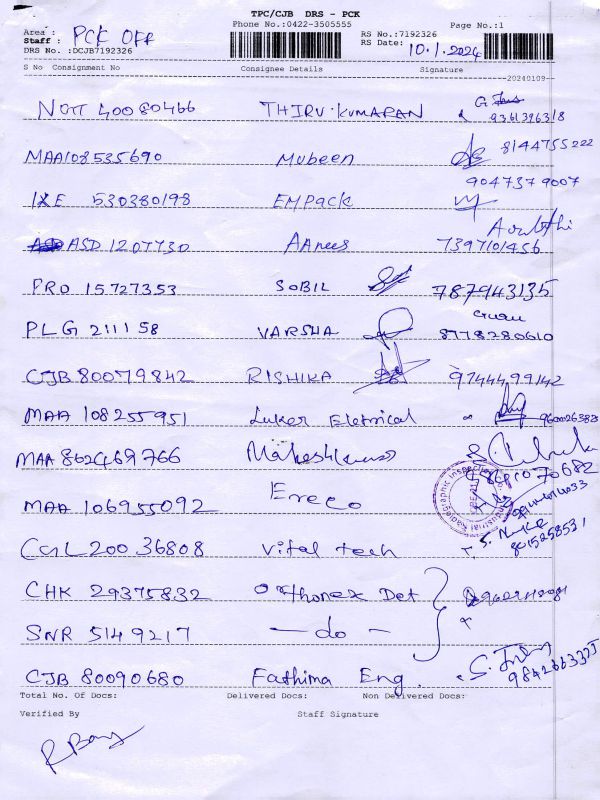 TPC/CJB DRS - PCK
Phone No.:0422-3505555 Page No.:1
Area : PCK OFF
Staff :
DRS No. :DCJB7192326
RS No.:7192326
RS Date: 10.1.2024
S No Consignment No Consignee Details Signature
20240109
NOTT 40080466 THIRU.KUMARAN
MAA108535690 Mubeen 8144755222
IXE 530380198 EMPack 9047379007
ASD 1207730 AAnees 7397101456
PRO 15727353 SOBIL 787943135
PLG 211158 VARSHA 8778280610
CJB 80079842 RISHIKA 9744499142
MAA 108255951 Luker Eletrical
MAA 862469766
MAA 106955092 Ereco
CGL200 36808 Vital tech
CHK 29375832 Orthonex Det
SNR 5149217 - do -
CJB 80090680 Fathima Eng.
Total No. Of Docs: Delivered Docs: Non Delivered Docs:
Verified By Staff Signature